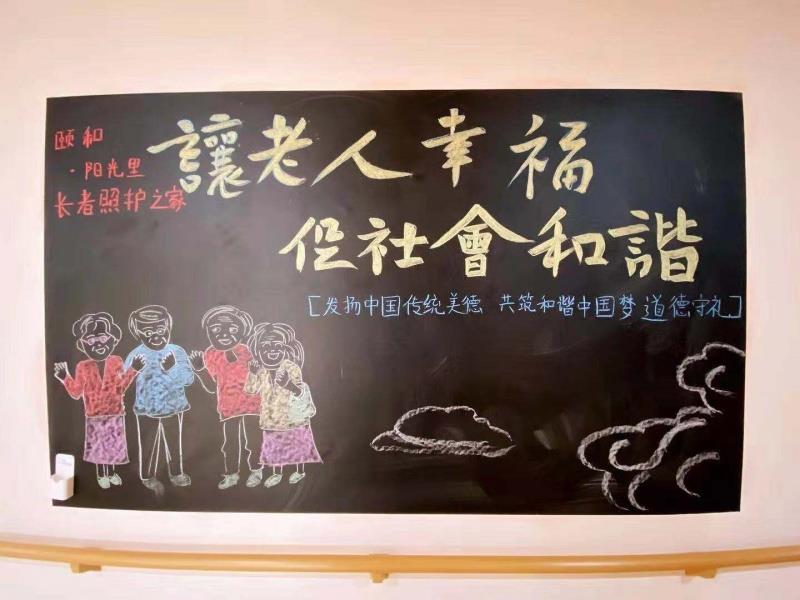 颐和
·阳光里
长者照护之家
讓老人幸福
促社會和諧
[发扬中国传统美德 共筑和谐中国梦 道德守礼]